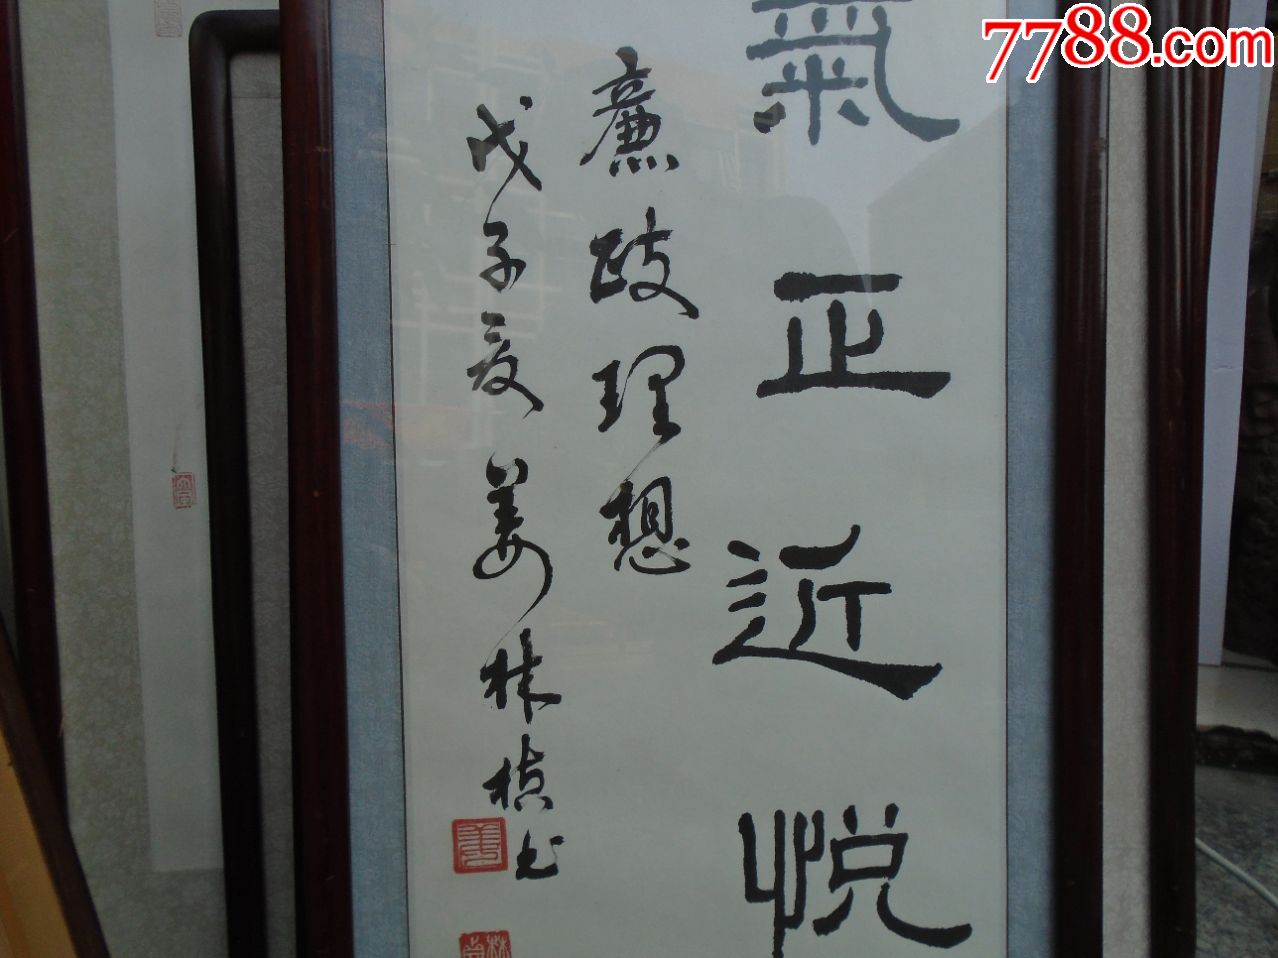 7788.com
氣正近悅
廉政理想
戊子夏姜林楨书